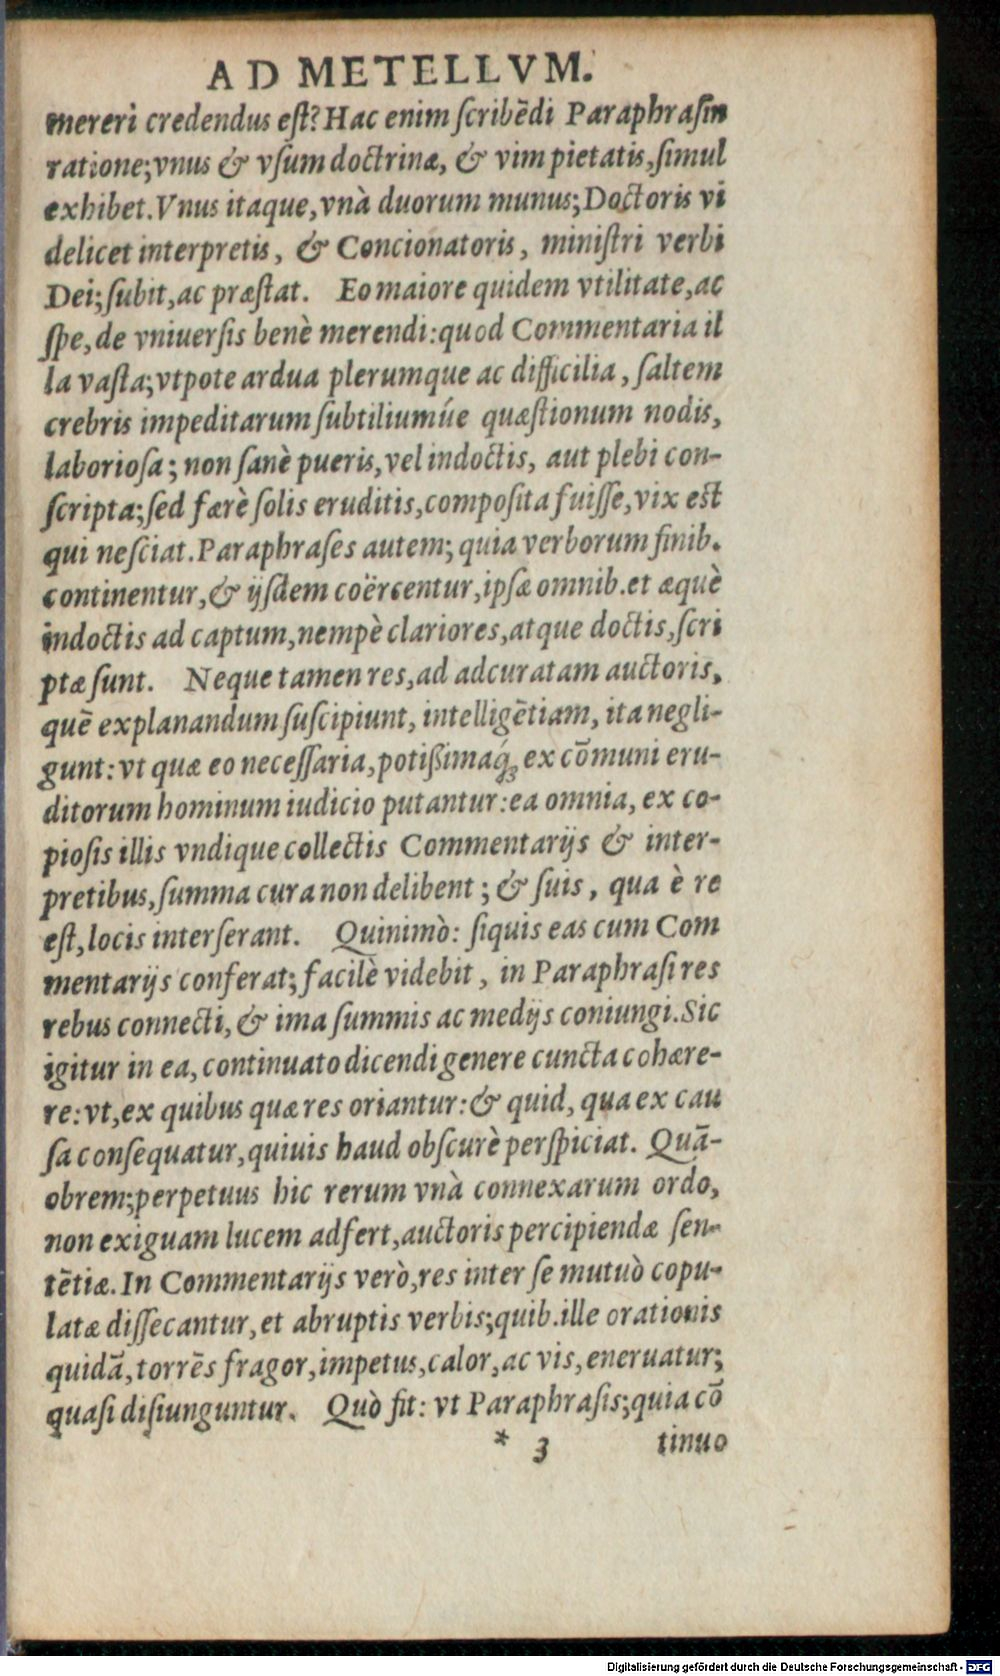 AD METELLVM.
mereri credendus eſt? Hac enim ſcribēdi Paraphraſin
ratione; vnus & vſum doctrinæ, & vim pietatis, ſimul
exhibet. Vnus itaque, vnà duorum munus; Doctoris vi
delicet interpretis, & Concionatoris, miniſtri verbi
Dei; ſubit, ac præſtat. Eo maiore quidem vtilitate, ac
ſpe, de vniuerſis benè merendi: quod Commentaria il
la vaſta; vtpote ardua plerumque ac difficilia, ſaltem
crebris impeditarum ſubtiliumúe quæſtionum nodis,
laborioſa; non ſanè pueris, vel indoctis, aut plebi con-
ſcripta; ſed færè ſolis eruditis, compoſita fuiſſe, vix eſt
qui neſciat. Paraphraſes autem; quia verborum finib.
continentur, & ijſdem coërcentur, ipſæ omnib. et æquè
indoctis ad captum, nempè clariores, atque doctis, ſcri
ptæ ſunt. Neque tamen res, ad adcuratam auctoris,
quē explanandum ſuſcipiunt, intelligētiam, ita negli-
gunt: vt quæ eo neceſſaria, potißimaq́ꝫ ex cōmuni eru-
ditorum hominum iudicio putantur: ea omnia, ex co-
pioſis illis vndique collectis Commentarijs & inter-
pretibus, ſumma cura non delibent; & ſuis, qua è re
eſt, locis interſerant. Quinimò: ſiquis eas cum Com
mentarijs conferat; facilè videbit, in Paraphraſi res
rebus connecti, & ima ſummis ac medijs coniungi. Sic
igitur in ea, continuato dicendi genere cuncta cohære-
re: vt, ex quibus quæ res oriantur: & quid, qua ex cau
ſa conſequatur, quiuis haud obſcurè perſpiciat. Quā-
obrem; perpetuus hic rerum vnà connexarum ordo,
non exiguam lucem adfert, auctoris percipiendæ ſen-
tētiæ. In Commentarijs verò, res inter ſe mutuò copu-
latæ diſſecantur, et abruptis verbis; quib. ille orationis
quidā, torrēs fragor, impetus, calor, ac vis, eneruatur;
quaſi diſiunguntur. Quò fit: vt Paraphraſis; quia cō
* 3 tinuo
Digitalisierung gefördert durch die Deutsche Forschungsgemeinschaft - DFG